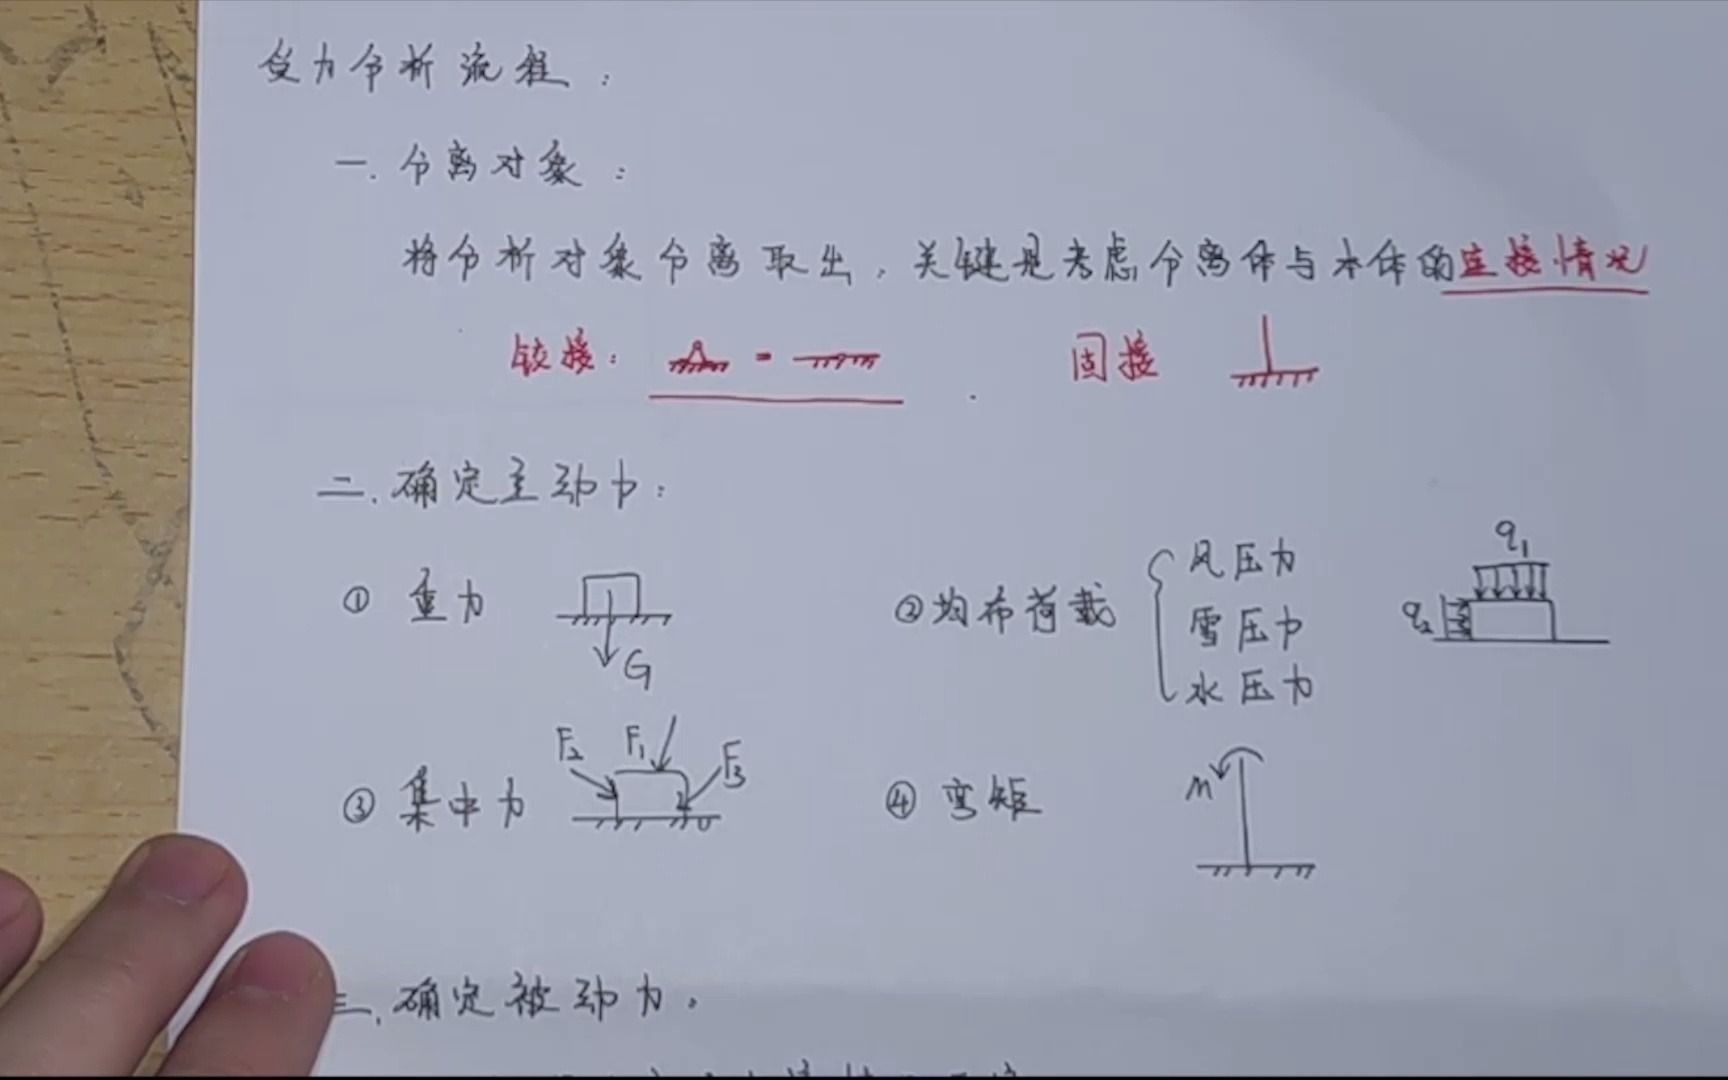 受力分析流程：
一.分离对象：
将分析对象分离取出，关键是考虑分离体与本体的连接情况
铰接： = 固接
二.确定主动力：
① 重力 G
②均布荷载 { 风压力 雪压力 水压力 q₁ q₂
③ 集中力 F₂ F₁ F₃
④ 弯矩 m
三.确定被动力.